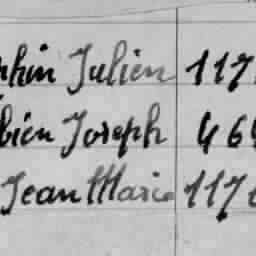 Julien 117
Joseph 46
Jean Marie 117